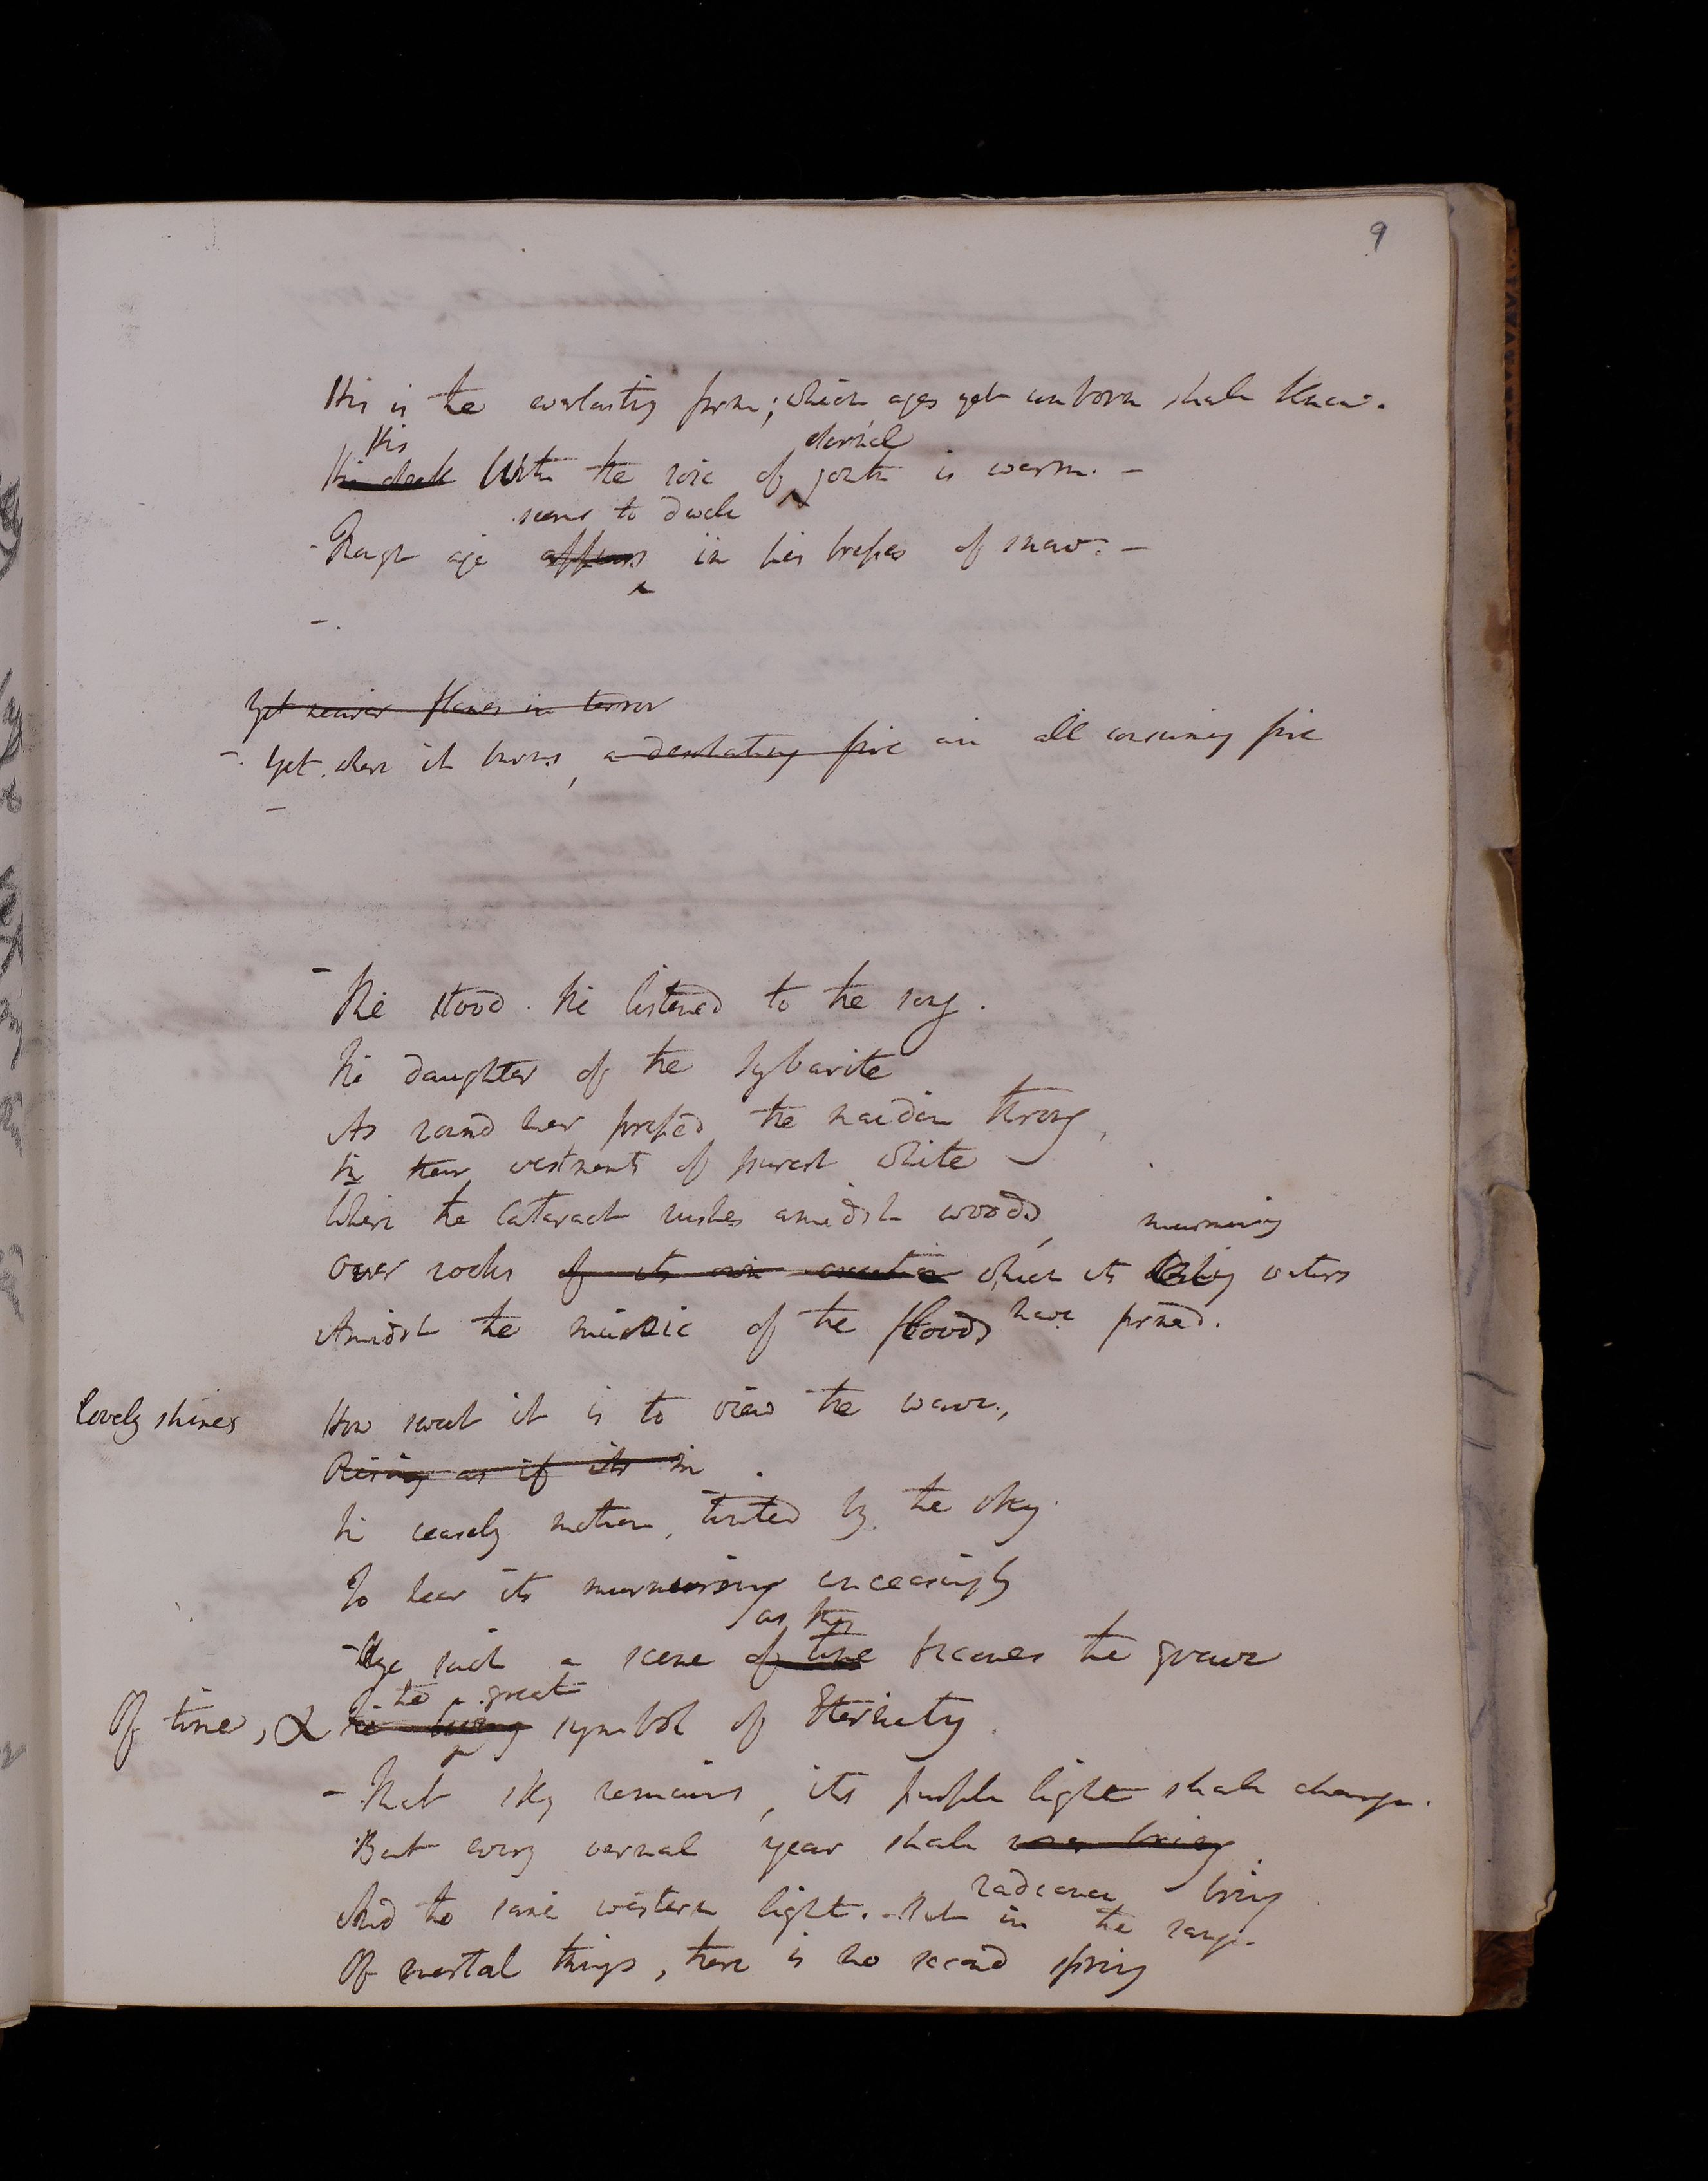 9
His is the everlasting form; which ages yet unborn shall know.
His eternal
His cheek With the rose of youth is warm. –
seems to dwell
Though age appears in his tresses of snow. –
–.
Yet nearer flames in terror
–. Yet when it burns, a desolating fire an all consuming fire
–
– She stood. She listened to the song.
The daughter of the Sybarite
As round her pressed the maiden throng,
In their vestments of purest white
Where the Cataract rushes amidst woods,
murmuring
Over rocks of its own creation which its waters
Amidst the music of the floods have formed.
lovely shines How sweet it is to view the wave,
Rising as if its in
In ceasely motion, tinted by the sky.
To hear its murmuring unceasingly
as this
– Aye such a scene of time becomes the grave
the great
Of time, & the symbol of Eternity.
– That sky remains, its purple light shall change.
But every vernal year shall ever bring
radiance bring
And the same western light. – But in the range
Of mortal things, there is no second spring